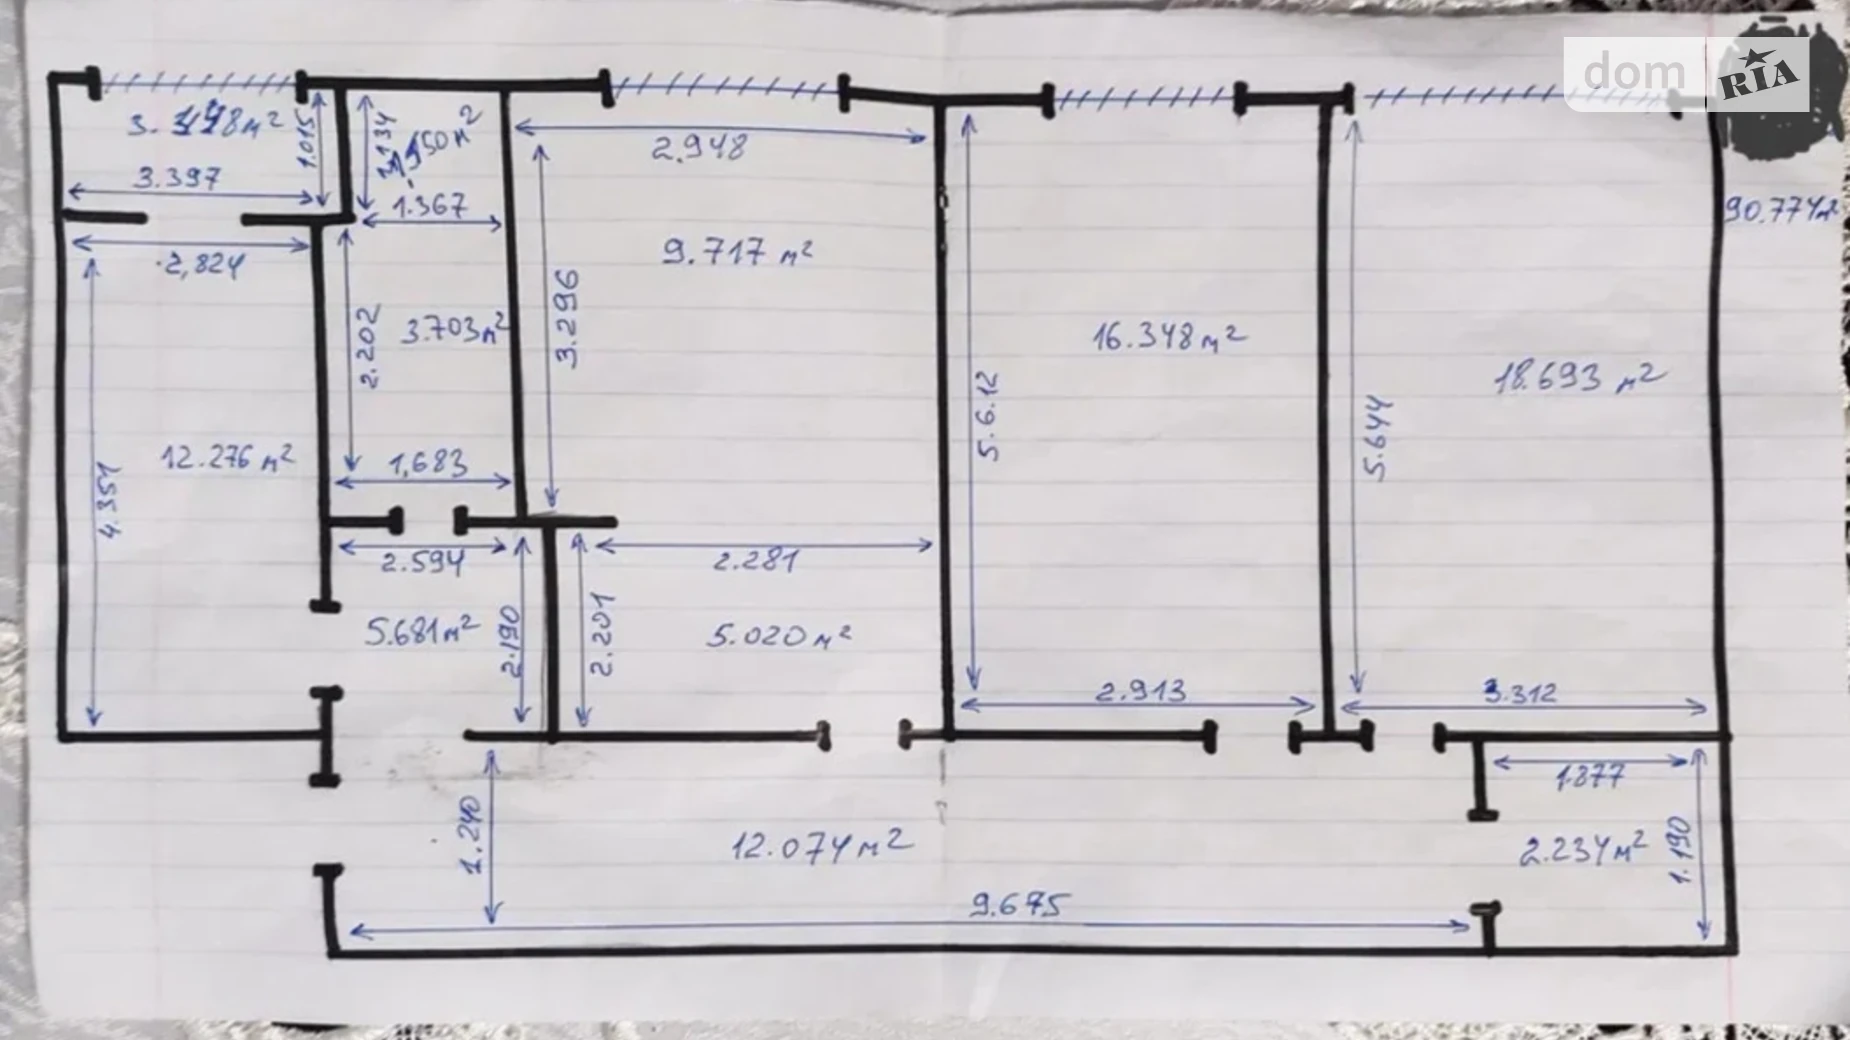 dom RIA
3.448м²
1.015
3.397
1.134
1.367
2.948
90.774м²
2,824
9.717 м²
2.202
3.703м²
3.296
16.348м²
18.693 м²
5.6.12
5.644
12.276м²
4.351
1,683
2.594
2.281
5.681м²
2.190
2.201
5.020м²
2.913
3.312
1.877
1.240
12.074м²
2.234м²
1.190
9.675